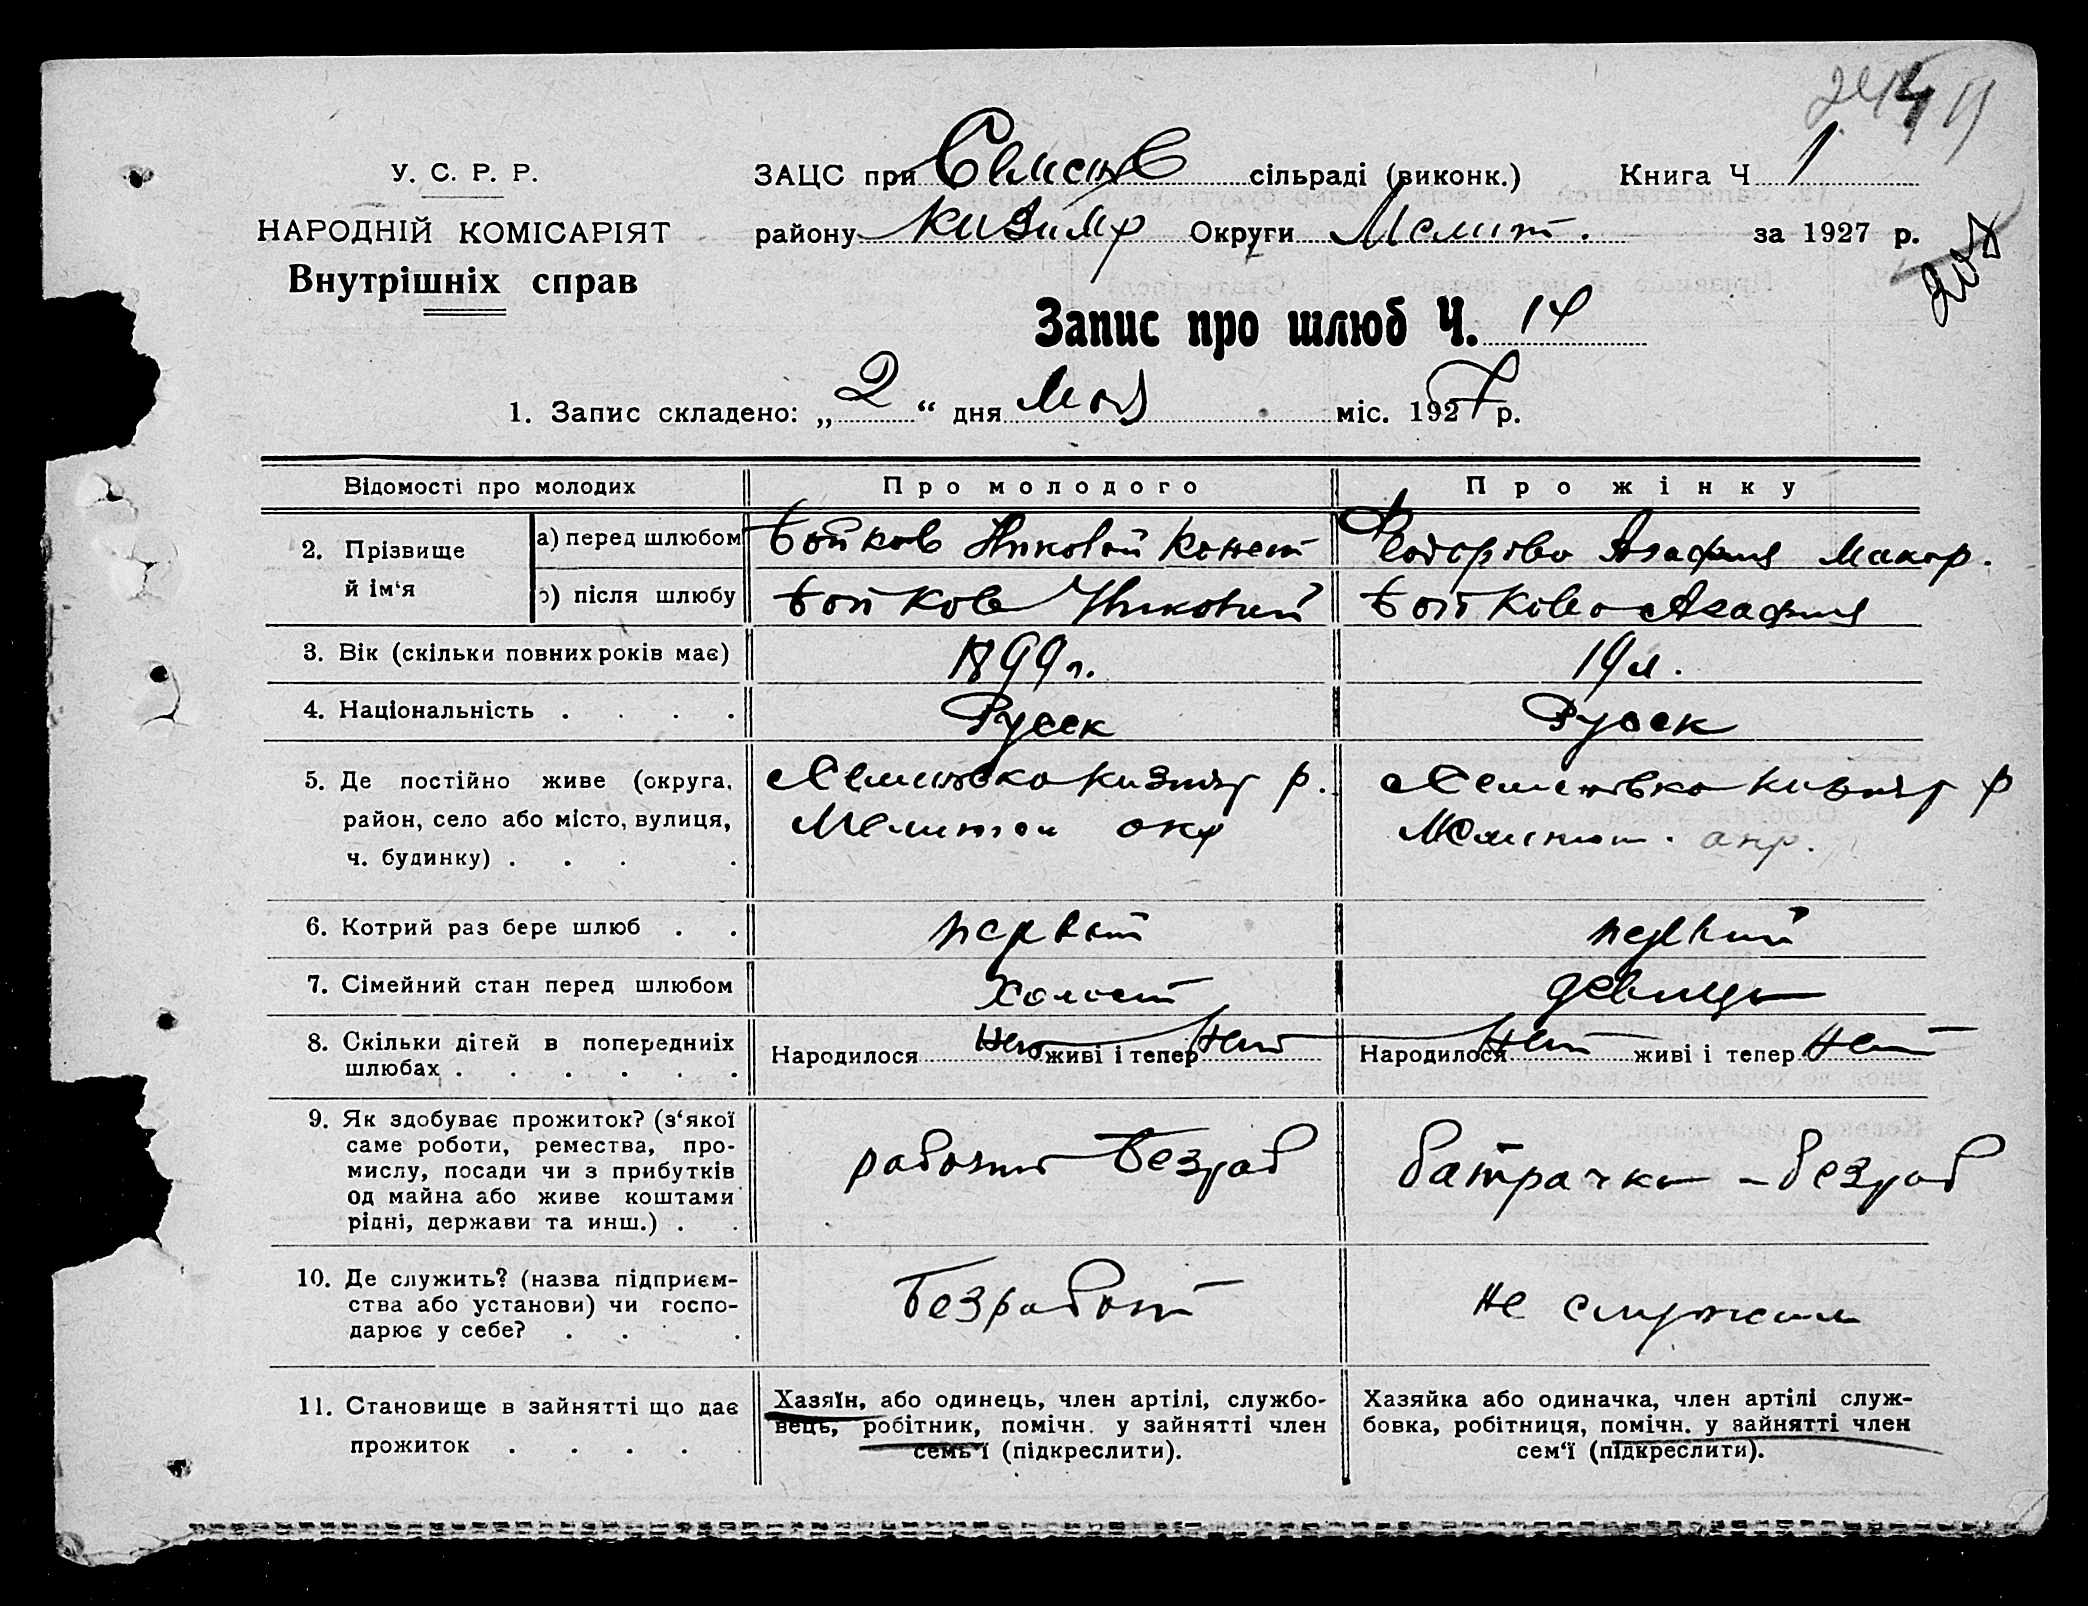 У. С. Р. Р.
НАРОДНІЙ КОМІСАРІЯТ
Внутрішніх справ
ЗАЦС при Семенів сільраді (виконк.) Книга Ч 1
району Кизіяр Округи Меліт. за 1927 р.
Запис про шлюб Ч. 14
1. Запис складено: „ 2 “ дня Мая міс. 1927 р.
Відомості про молодих Про молодого Про жінку
2. Прізвище й ім‘я
а) перед шлюбом Бойков Николай Конст Федорова Агафия Макар.
б) після шлюбу Бойков Николай Бойкова Агафия
3. Вік (скільки повних років має) 1899 г. 19 л.
4. Національність . . . . Русск Русск
5. Де постійно живе (округа, Семеновка Кизияр р. Семеновка Кизияр р
район, село або місто, вулиця, Мелитоп окр Мелитоп. окр.
ч. будинку) . . . .
6. Котрий раз бере шлюб . . первый первый
7. Сімейний стан перед шлюбом Холост девица
8. Скільки дітей в попередниіх Народилося Нет живі і тепер Нет Народилося Нет живі і тепер Нет
шлюбах . . . . . .
9. Як здобуває прожиток? (з‘якої
саме роботи, ремества, про-
мислу, посади чи з прибутків рабочий Безраб батрачка - безраб
од майна або живе коштами
рідні, держави та инш.) . .
10. Де служить? (назва підприєм-
ства або установи) чи госпо- Безработ не служит
дарює у себе? . . .
11. Становище в зайнятті що дає
прожиток . . . . .
Хазяїн, або одинець, член артілі, службо-
вець, робітник, помічн. у зайнятті член
семь‘ї (підкреслити).
Хазяйка або одиначка, член артілі служ-
бовка, робітниця, помічн. у зайнятті член
сем‘ї (підкреслити).